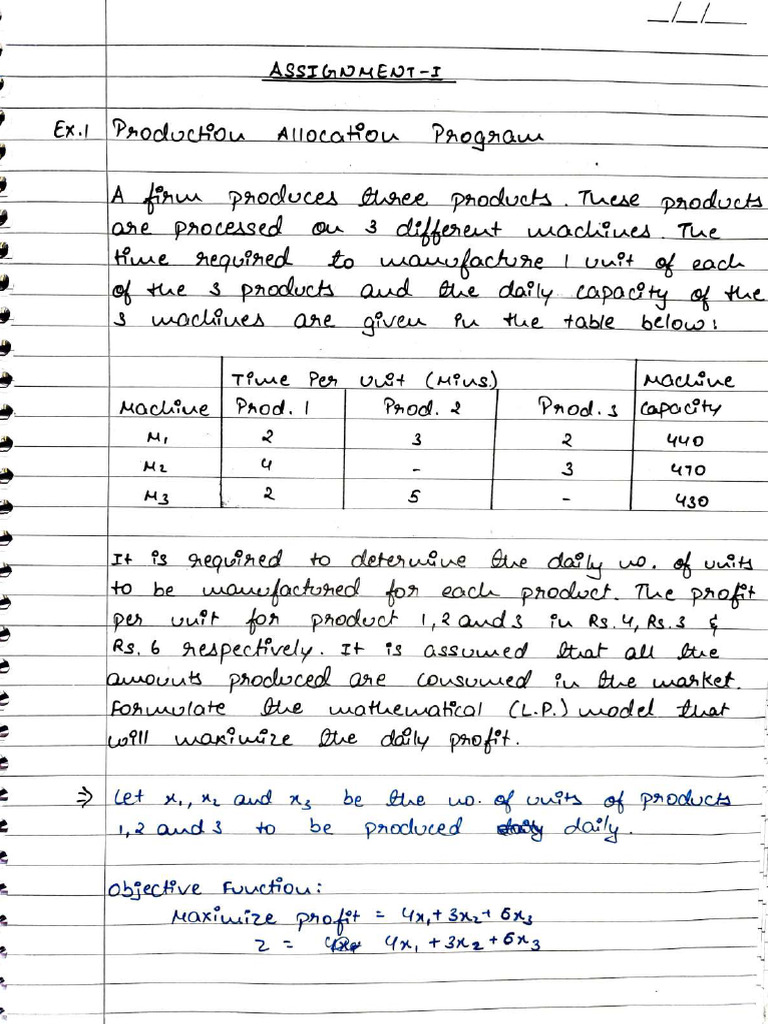 _/_/__
ASSIGNMENT-I
Ex.1 Production Allocation Program
A firm produces three products. These products
are processed on 3 different machines. The
time required to manufacture 1 unit of each
of the 3 products and the daily capacity of the
3 machines are given in the table below:
Time Per Unit (Mins.) Machine
Machine Prod. 1 Prod. 2 Prod. 3 capacity
M1 2 3 2 440
M2 4 - 3 470
M3 2 5 - 430
It is required to determine the daily no. of units
to be manufactured for each product. The profit
per unit for product 1,2 and 3 in Rs. 4, Rs. 3 &
Rs. 6 respectively. It is assumed that all the
amounts produced are consumed in the market.
Formulate the mathematical (L.P.) model that
will maximize the daily profit.
⇒ Let x1, x2 and x3 be the no. of units of products
1,2 and 3 to be produced daily.
Objective Function:
Maximize profit = 4x1 + 3x2 + 6x3
z = 4x1 + 3x2 + 6x3